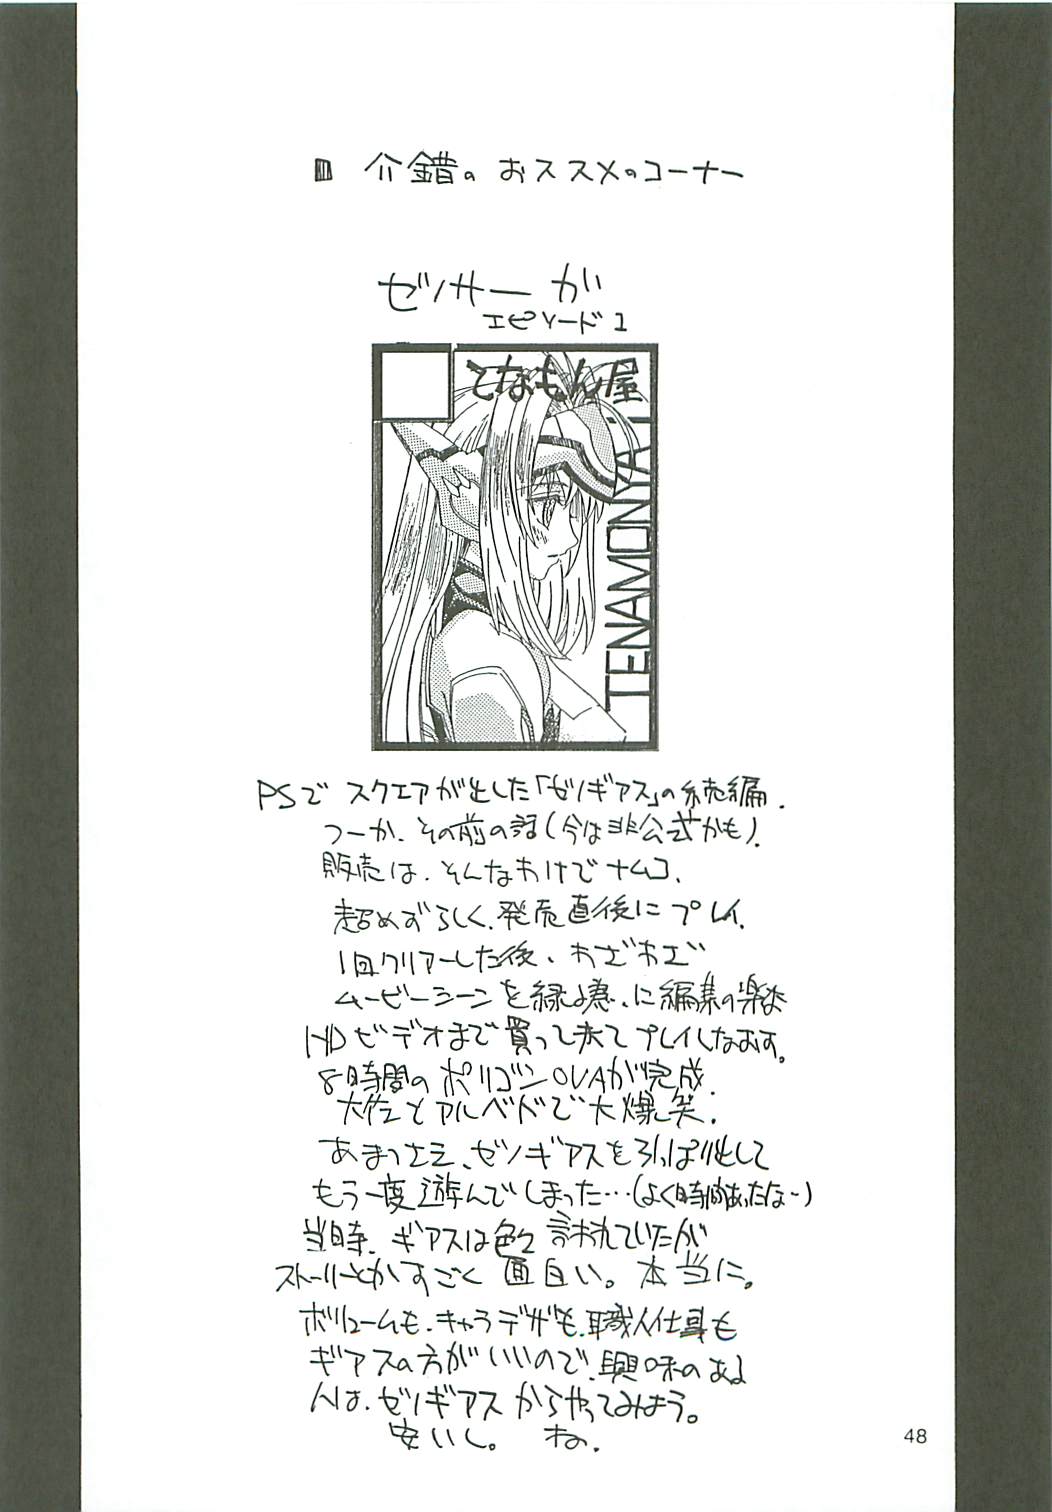 介錯の おススメのコーナー
ゼノサーガ
エピソード1
てなもん屋
TENAMONYA
PSで スクエアが出した「ゼノギアス」の続編.
つーか、その前の話(今は非公式かも).
販売は、そんなわけでナムコ.
超めずらしく、発売直後にプレイ.
1回クリアーした後、わざわざ
ムービーシーンを に編集の楽な
HDビデオまで買って来てプレイしなおす。
8時間の ポリゴンOVAが完成.
大佐とアルベドで大爆笑.
あまつさえ、ゼノギアスを引っぱり出して
もう一度遊んでしまった…(よく時間あったな〜)
当時、ギアスは色々言われていたが
ストーリーとかすごく 面白い。本当に。
ボリュームも、キャラデザも、職人仕事も
ギアスの方がいいので、興味のある
人は、ゼノギアスからやってみよう。
安いし。 ね.
48